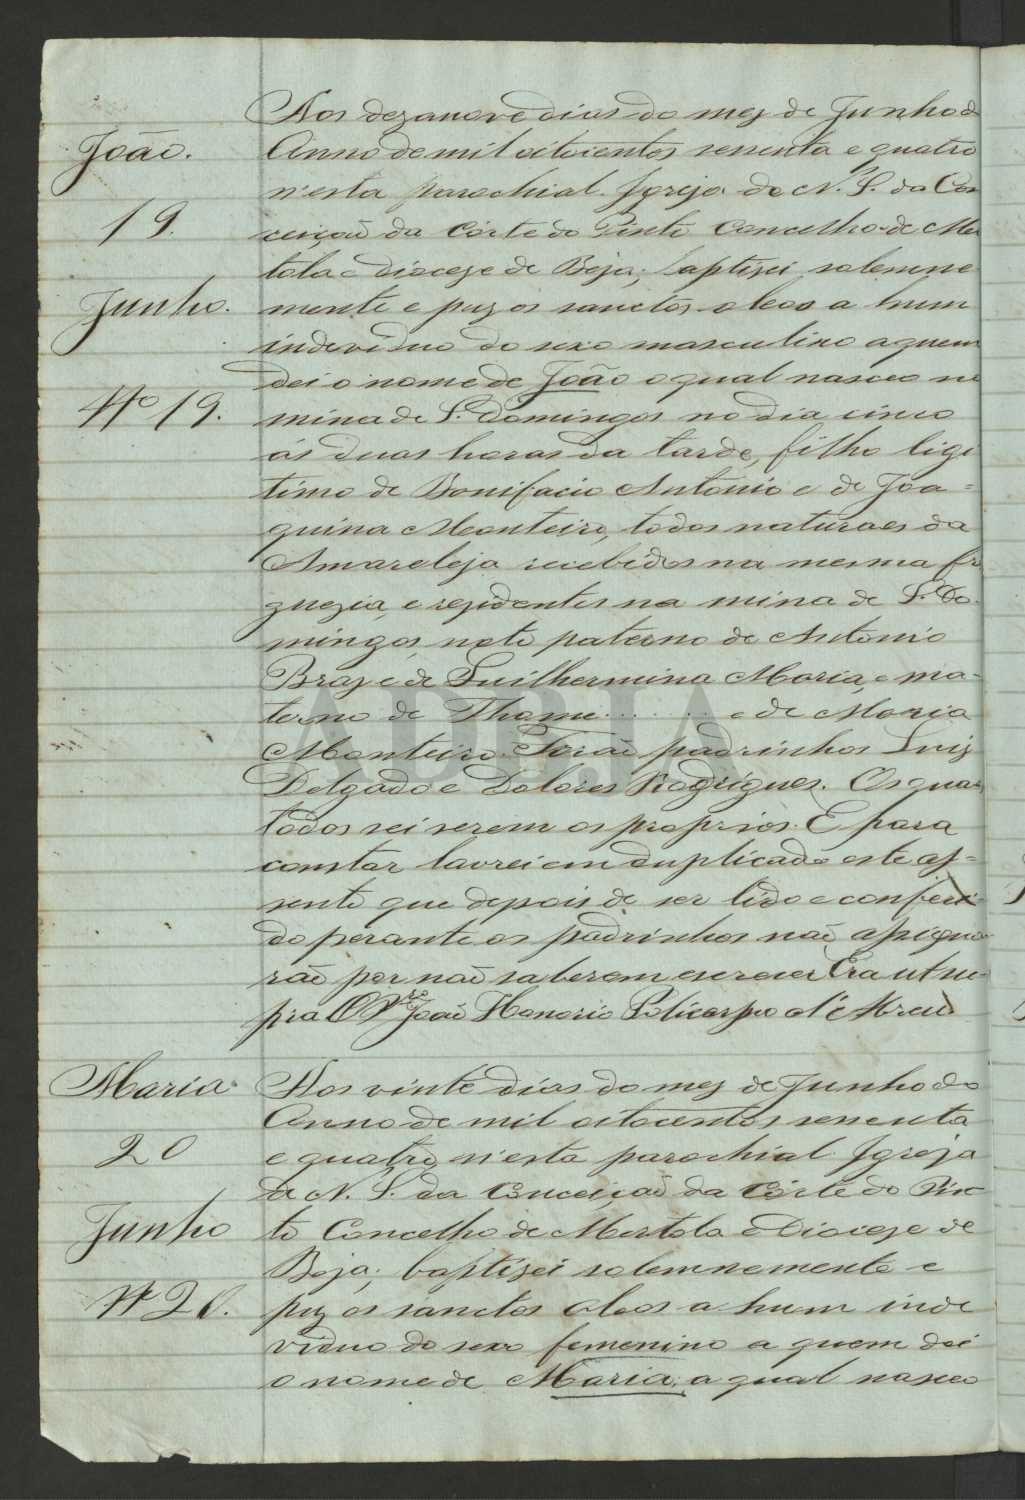 João.
19.
Junho.
Nº 19.
Aos dezanove dias do mez de Junho do
Anno de mil oitocentos sessenta e quatro
n'esta parochial Igreja de N. S. da Con
ceição da Córte do Pinto Concelho de Mer
tola e dioceze de Beja; baptisei solemne
mente e puz os sanctos oleos a hum
individuo do sexo masculino a quem
dei o nome de João o qual nasceo na
mina de S. Domingos no dia cinco
ás duas horas da tarde, filho ligi
timo de Bonifacio Antonio e de Joa=
quina Monteiro, todos naturaes da
Amareleja recebidos na mesma fr
guezia, e rezidentes na mina de S. Do
mingos, neto paterno de Antonio
Braz e de Guilhermina Maria, e ma-
terno de Thome ........ e de Maria
Monteiro. Forão padrinhos Luiz
Delgado e Dolores Rodrigues. Os quaes
todos sei serem os proprios. E para
constar lavrei em duplicado este as=
sento que depois de ser lido e conferi
do perante os padrinhos não assigna
rão por não saberem escrever Era ut su-
pra O Pr.e João Honorio Policarpo d'Abreu
Maria
20
Junho
Nº 20.
Aos vinte dias do mez de Junho do
Anno de mil oitocentos sessenta
e quatro n'esta parochial Igreja
de N. S. da Conceição da Córte do Pin
to Concelho de Mertola e Diocese de
Beja; baptizei solemnemente e
puz os sanctos oleos a hum inde
viduo do sexo femenino a quem dei
o nome de Maria, a qual nasceo